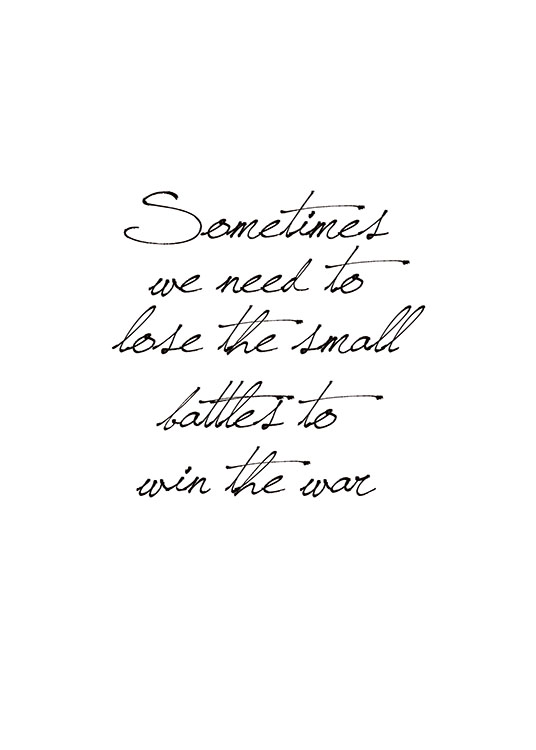 Sometimes
we need to
lose the small
battles to
win the war